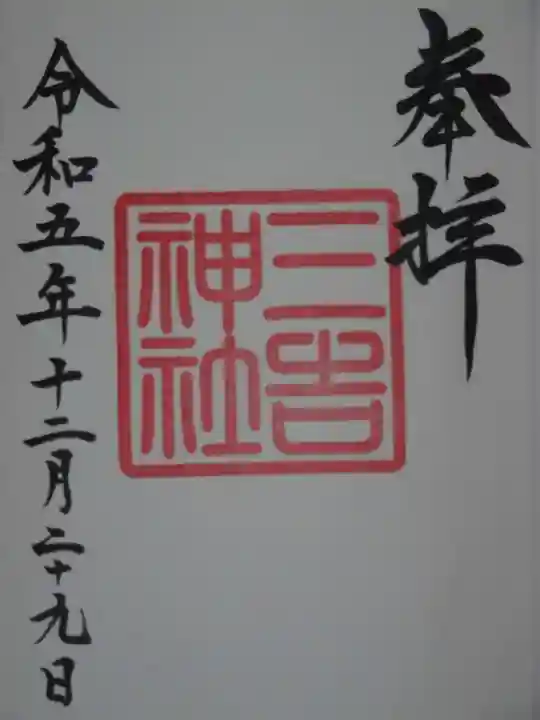 奉拝
三吉
神社
令和五年十二月二十九日